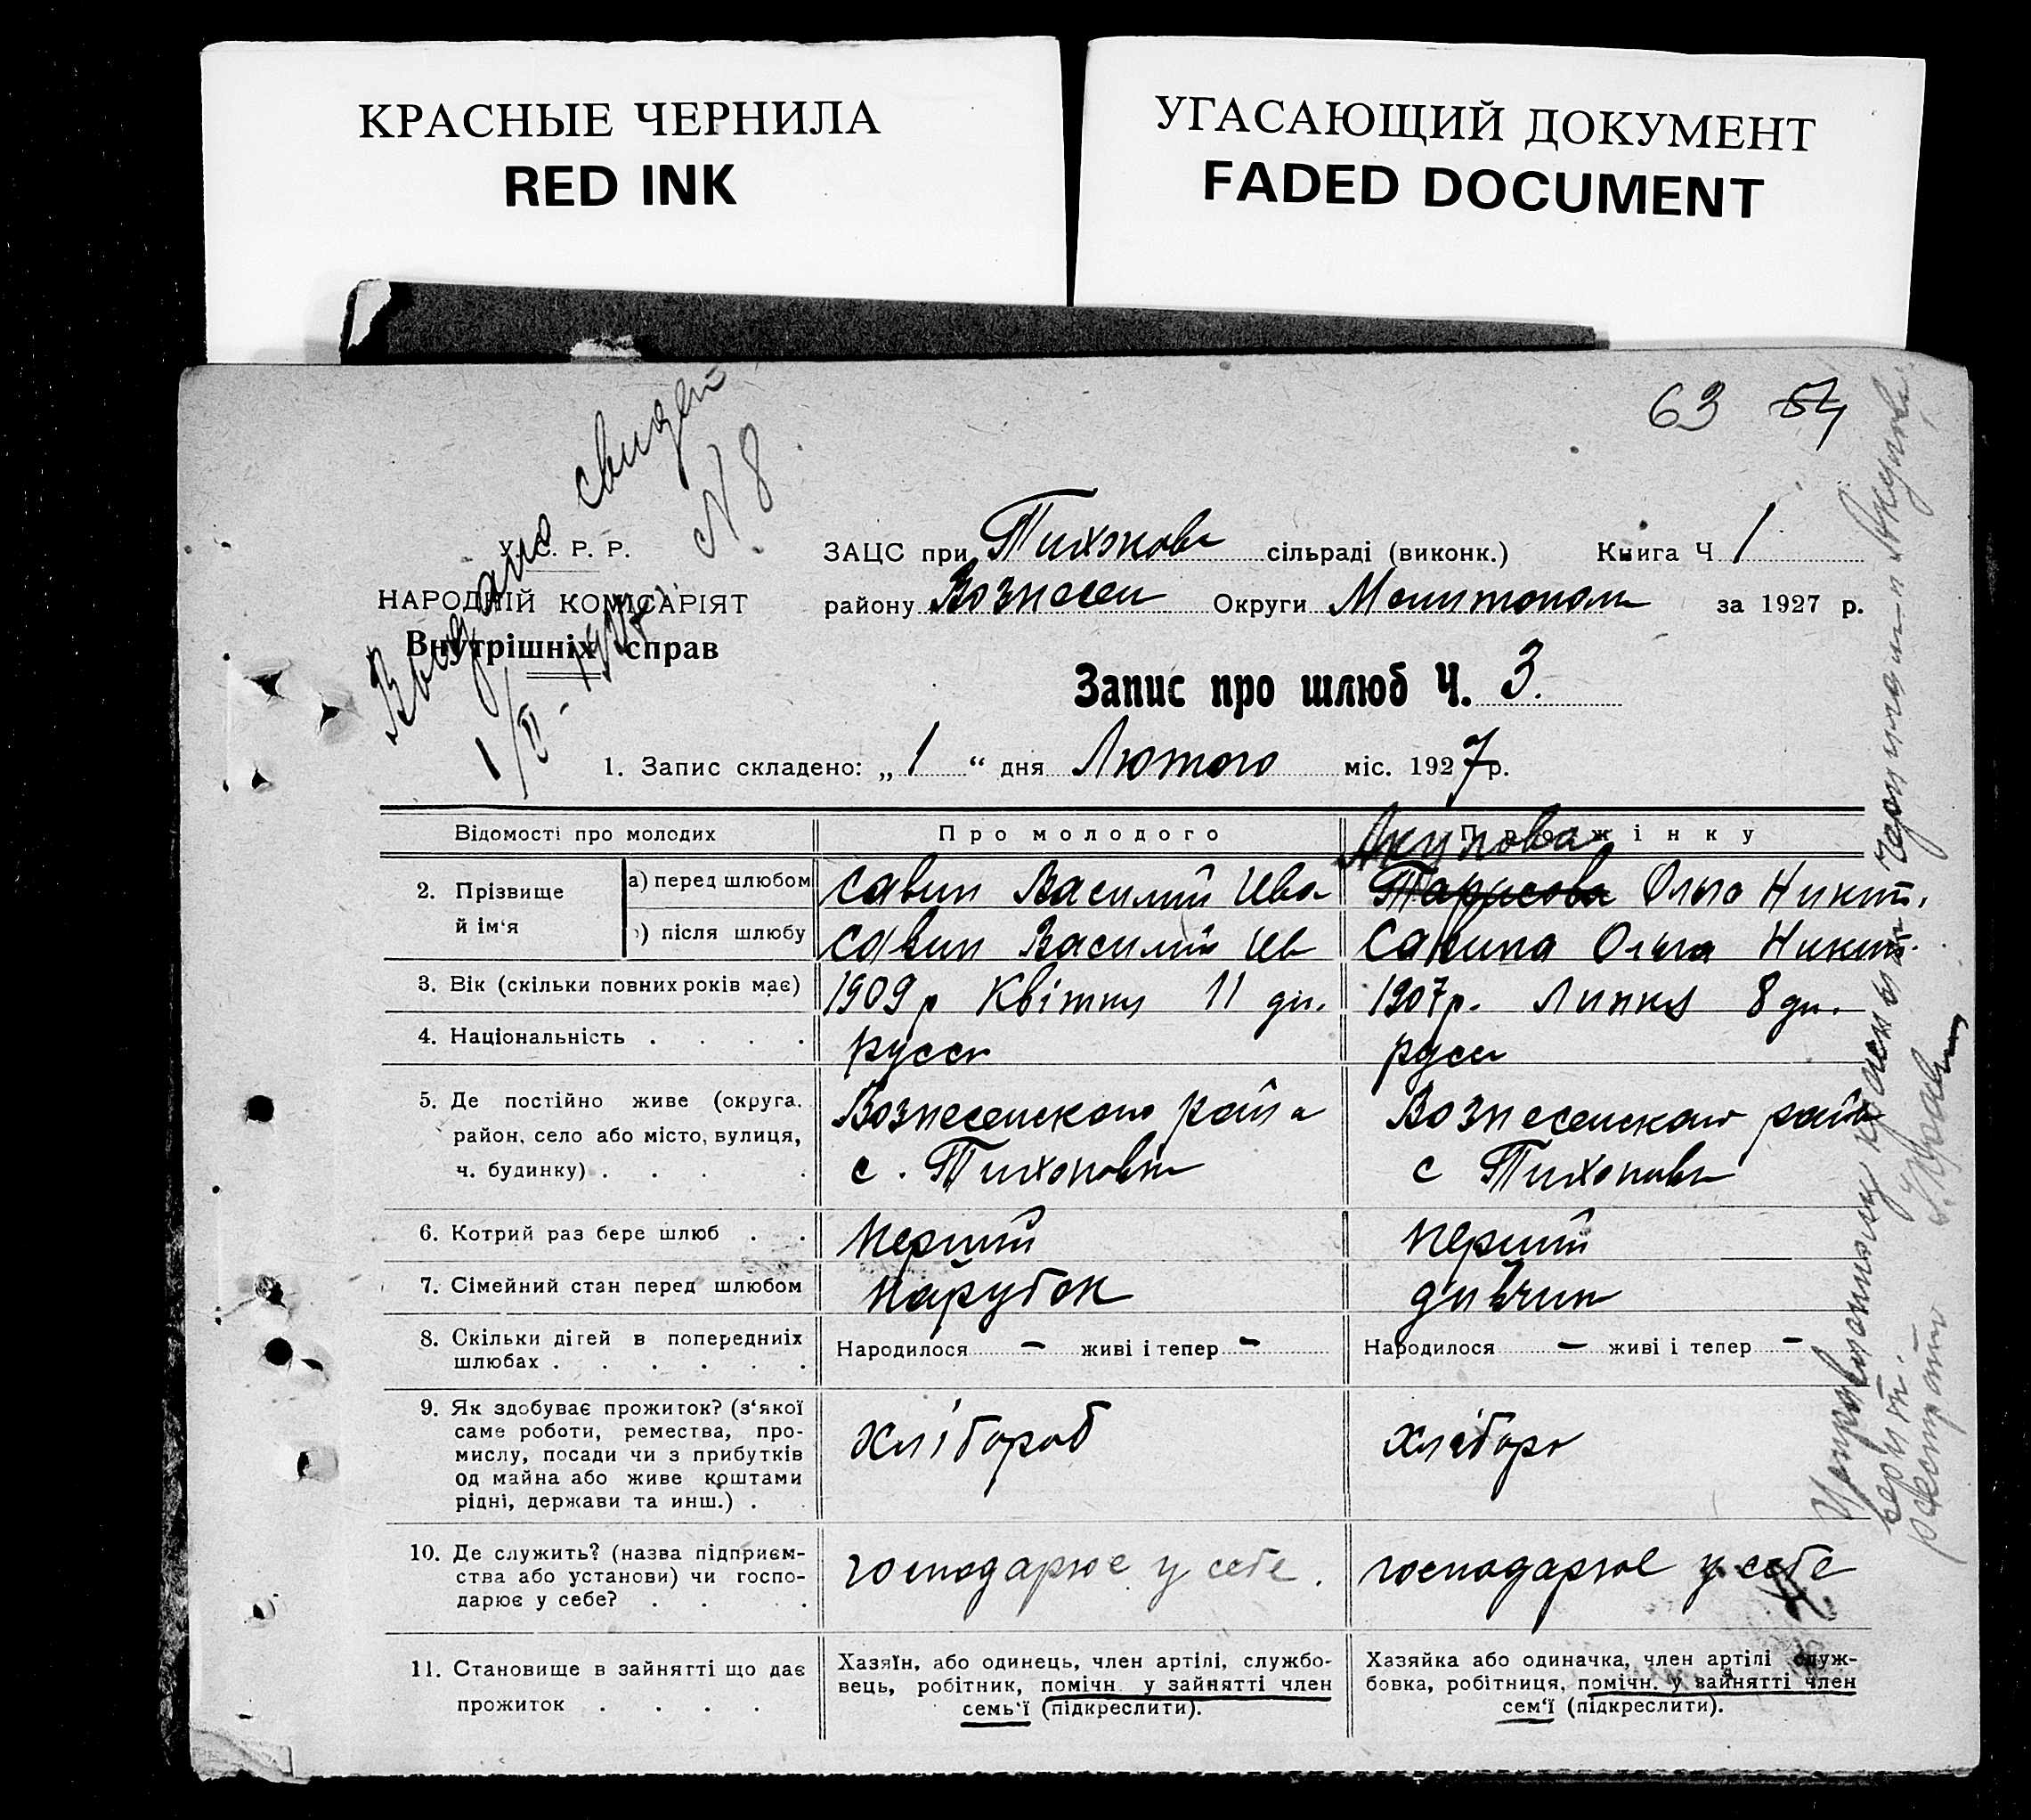 КРАСНЫЕ ЧЕРНИЛА
RED INK
УГАСАЮЩИЙ ДОКУМЕНТ
FADED DOCUMENT
63 54
Выдано свидет
N 8
1/II - 1927
У. С. Р. Р.
НАРОДНІЙ КОМІСАРІЯТ
Внутрішніх справ
ЗАЦС при Тихонов сільраді (виконк.) Книга Ч 1
району Вознесен Округи Мелитопол за 1927 р.
Запис про шлюб Ч. 3.
1. Запис складено: „ 1 “ дня Лютого міс. 1927 р.
Відомості про молодих Про молодого Про жінку
Акулова
2. Прізвище й ім‘я
а) перед шлюбом Савин Василий Ива Тарасова Ольга Никит.
) після шлюбу Савин Василий Ив Савина Ольга Никит.
3. Вік (скільки повних років має) 1909 р Квітня 11 дн. 1907 р. Липня 8 дн.
4. Національність . . . . русск русск
5. Де постійно живе (округа, район, село або місто, вулиця, ч. будинку) . . . .
Вознесенского район
с. Тихоновк
Вознесенского район
с Тихоновк
6. Котрий раз бере шлюб . . перший перший
7. Сімейний стан перед шлюбом парубок дивчин
8. Скільки дітей в попередниіх шлюбах . . . . . .
Народилося – живі і тепер –
Народилося – живі і тепер –
9. Як здобуває прожиток? (з‘якої
саме роботи, ремества, про-
мислу, посади чи з прибутків
од майна або живе коштами
рідні, держави та инш.) .
хлібороб
хлібор
10. Де служить? (назва підприєм-
ства або установи) чи госпо-
дарює у себе? . . .
господарює у себе.
господарює у себе
11. Становище в зайнятті що дає
прожиток . . . .
Хазяїн, або одинець, член артілі, службо-
вець, робітник, помічн у зайнятті член
семь‘ї (підкреслити).
Хазяйка або одиначка, член артілі служ-
бовка, робітниця, помічн. у зайнятті член
сем‘ї (підкреслити).
красными чернилами Акулова